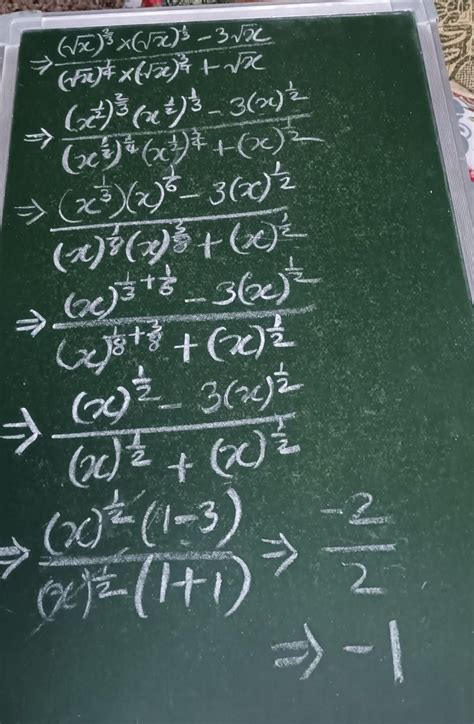 ⇒ ((√x)^(2/3) × (√x)^(1/3) − 3√x) / ((√x)^(1/4) × (√x)^(3/4) + √x)
⇒ ((x^(1/2))^(2/3) (x^(1/2))^(1/3) − 3(x)^(1/2)) / ((x^(1/2))^(1/4) (x^(1/2))^(3/4) + (x)^(1/2))
⇒ ((x^(1/3))(x)^(1/6) − 3(x)^(1/2)) / ((x)^(1/8) (x)^(3/8) + (x)^(1/2))
⇒ ((x)^(1/3 + 1/6) − 3(x)^(1/2)) / ((x)^(1/8 + 3/8) + (x)^(1/2))
⇒ ((x)^(1/2) − 3(x)^(1/2)) / ((x)^(1/2) + (x)^(1/2))
⇒ ((x)^(1/2) (1−3)) / ((x)^(1/2) (1+1)) ⇒ −2/2
⇒ −1